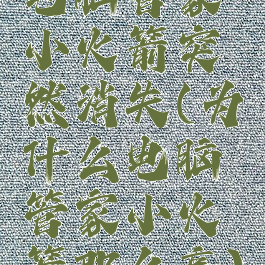 电脑管家
小火箭突
然消失(为
什么电脑
管家小火
箭那么高)